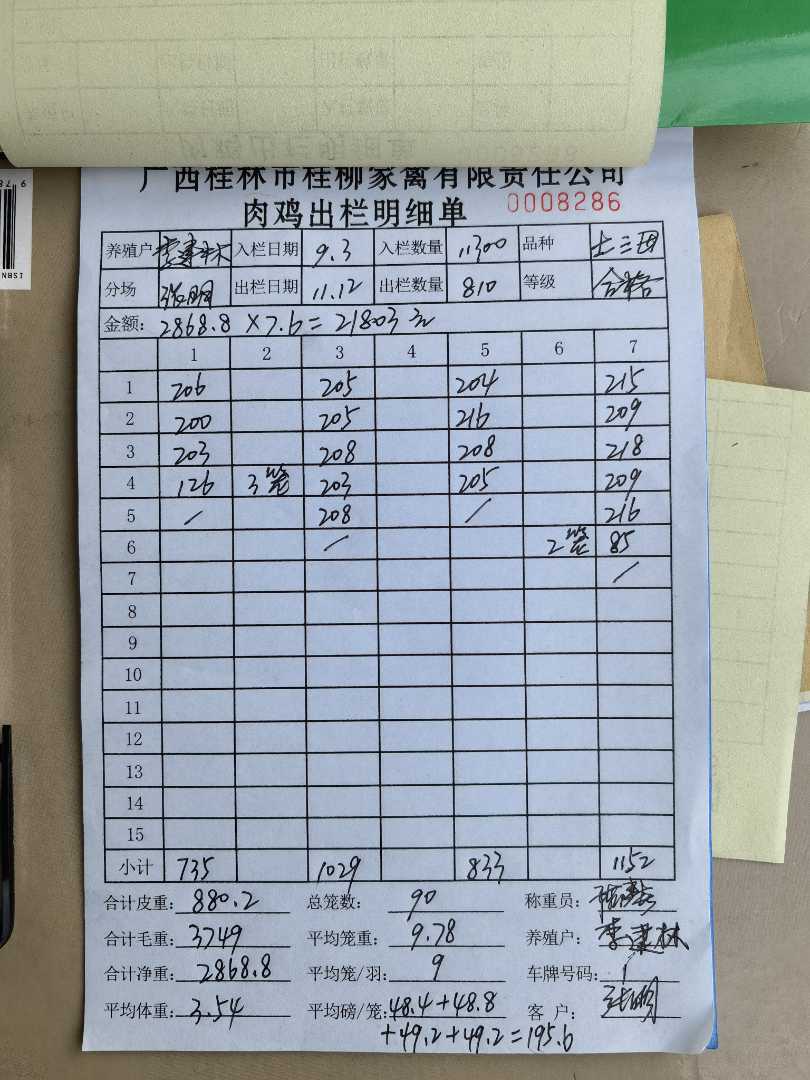 广西桂林市桂柳家禽有限责任公司
肉鸡出栏明细单 0008286
养殖户 李建林 入栏日期 9.3 入栏数量 11300 品种 土三因
分场 张明 出栏日期 11.12 出栏数量 810 等级 合格
金额: 2868.8×7.6=21803元
1 2 3 4 5 6 7
1 206 205 204 215
2 200 205 216 209
3 203 208 208 218
4 126 3笼 203 205 209
5 / 208 / 216
6 / 2笼 85
7 /
8
9
10
11
12
13
14
15
小计 735 1029 833 1152
合计皮重: 880.2 总笼数: 90 称重员:
合计毛重: 3749 平均笼重: 9.78 养殖户: 李建林
合计净重: 2868.8 平均笼/羽: 9 车牌号码: /
平均体重: 3.54 平均磅/笼: 48.4+48.8 客户: 张明
+49.2+49.2=195.6
ISBN